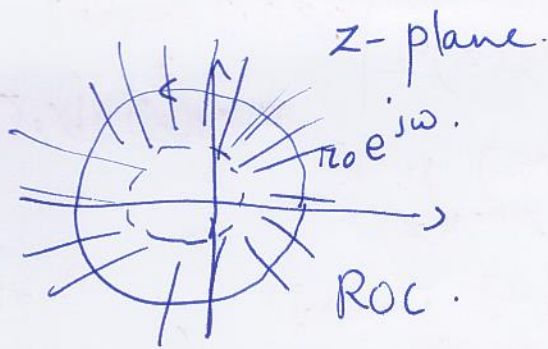 z-plane.
r₀e^jω.
ROC.